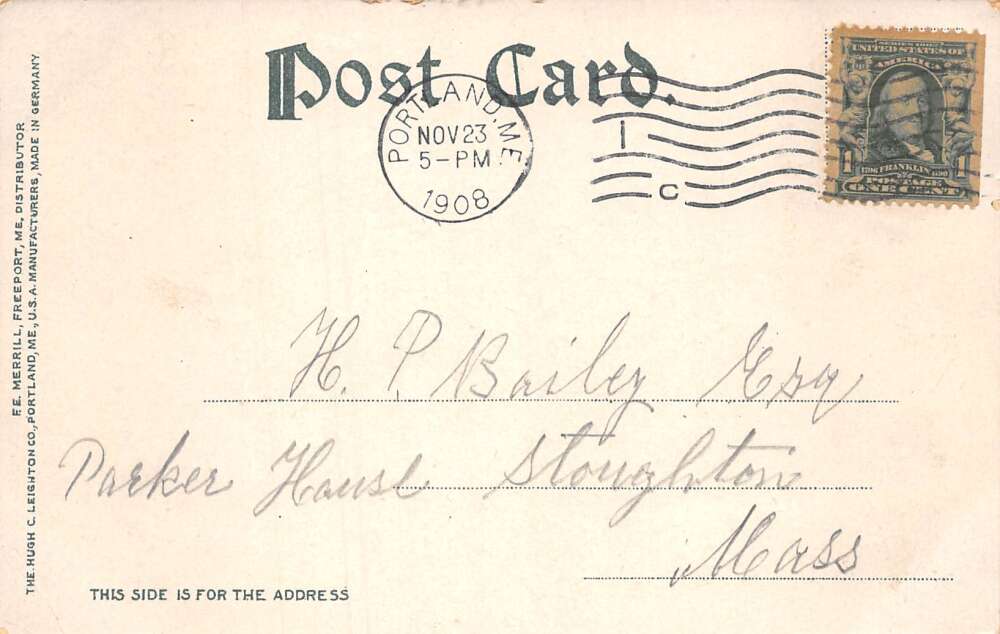 Post Card.
PORTLAND, ME.
NOV 23
5-PM
1908
1
C
SERIES 1902
UNITED STATES OF
AMERICA
1706 FRANKLIN 1790
POSTAGE
ONE CENT
H. P. Bailey Esq
Parker House Stoughton
Mass
THIS SIDE IS FOR THE ADDRESS
F.E. MERRILL, FREEPORT, ME, DISTRIBUTOR
THE HUGH C. LEIGHTON CO., PORTLAND, ME., U.S.A. MANUFACTURERS, MADE IN GERMANY